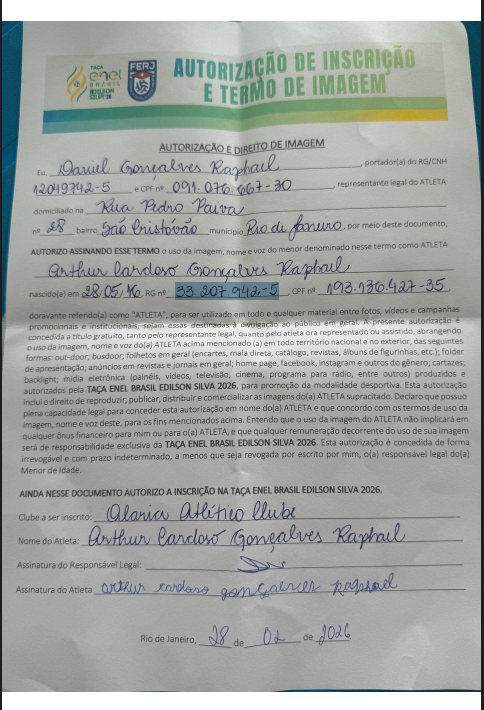 TAÇA
enel
BRASIL
EDILSON
SILVA '26
FERJ
AUTORIZAÇÃO DE INSCRIÇÃO
E TERMO DE IMAGEM
AUTORIZAÇÃO E DIREITO DE IMAGEM
Eu, Daniel Gonçalves Raphael, portador(a) do RG/CNH
12049742-5 e CPF nº 091.076.667-30, representante legal do ATLETA
domiciliado na Rua Pedro Paiva
nº 28 bairro São Cristóvão município Rio de Janeiro, por meio deste documento,
AUTORIZO ASSINANDO ESSE TERMO o uso da imagem, nome e voz do menor denominado nesse termo como ATLETA
Arthur Cardoso Gonçalves Raphael
nascido(a) em 28/05/16, RG nº 33.207.942-5, CPF nº 193.136.427-35
doravante referido(a) como "ATLETA", para ser utilizado em todo e qualquer material entre fotos, vídeos e campanhas
promocionais e institucionais, sejam essas destinadas à divulgação ao público em geral. A presente autorização é
concedida a título gratuito, tanto pelo representante legal, quanto pelo atleta ora representado ou assistido, abrangendo
o uso da imagem, nome e voz do(a) ATLETA acima mencionado (a) em todo território nacional e no exterior, das seguintes
formas: out-door; busdoor; folhetos em geral (encartes, mala direta, catálogo, revistas, álbuns de figurinhas, etc.); folder
de apresentação; anúncios em revistas e jornais em geral; home page, facebook, instagram e outros do gênero; cartazes;
backlight; mídia eletrônica (painéis, vídeos, televisão, cinema, programa para rádio, entre outros) produzidos e
autorizados pela TAÇA ENEL BRASIL EDILSON SILVA 2026, para promoção da modalidade desportiva. Esta autorização
inclui o direito de reproduzir, publicar, distribuir e comercializar as imagens do(a) ATLETA supracitado. Declaro que possuo
plena capacidade legal para conceder esta autorização em nome do(a) ATLETA e que concordo com os termos de uso da
imagem, nome e voz deste, para os fins mencionados acima. Entendo que o uso da imagem do ATLETA não implicará em
qualquer ônus financeiro para mim ou para o(a) ATLETA, e que qualquer remuneração decorrente do uso de sua imagem
será de responsabilidade exclusiva da TAÇA ENEL BRASIL EDILSON SILVA 2026. Esta autorização é concedida de forma
irrevogável e com prazo indeterminado, a menos que seja revogada por escrito por mim, o(a) responsável legal do(a)
Menor de Idade.
AINDA NESSE DOCUMENTO AUTORIZO A INSCRIÇÃO NA TAÇA ENEL BRASIL EDILSON SILVA 2026.
Clube a ser inscrito: Olaria Atlético Clube
Nome do Atleta: Arthur Cardoso Gonçalves Raphael
Assinatura do Responsável Legal:
Assinatura do Atleta arthur cardoso gonçalves raphael
Rio de Janeiro, 28 de 02 de 2026